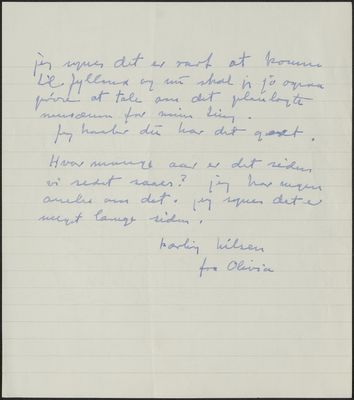 jeg synes det er rart at komme
til Jylland og nu skal jeg jo ogsaa
prøve at tale om det planlagte
museum for mine ting.
Jeg haaber du har det godt.
Hvor mange aar er det siden
vi sidst saaes? jeg har ingen
anelse om det. jeg synes det er
meget længe siden.
Kærlig hilsen
fra Olivia